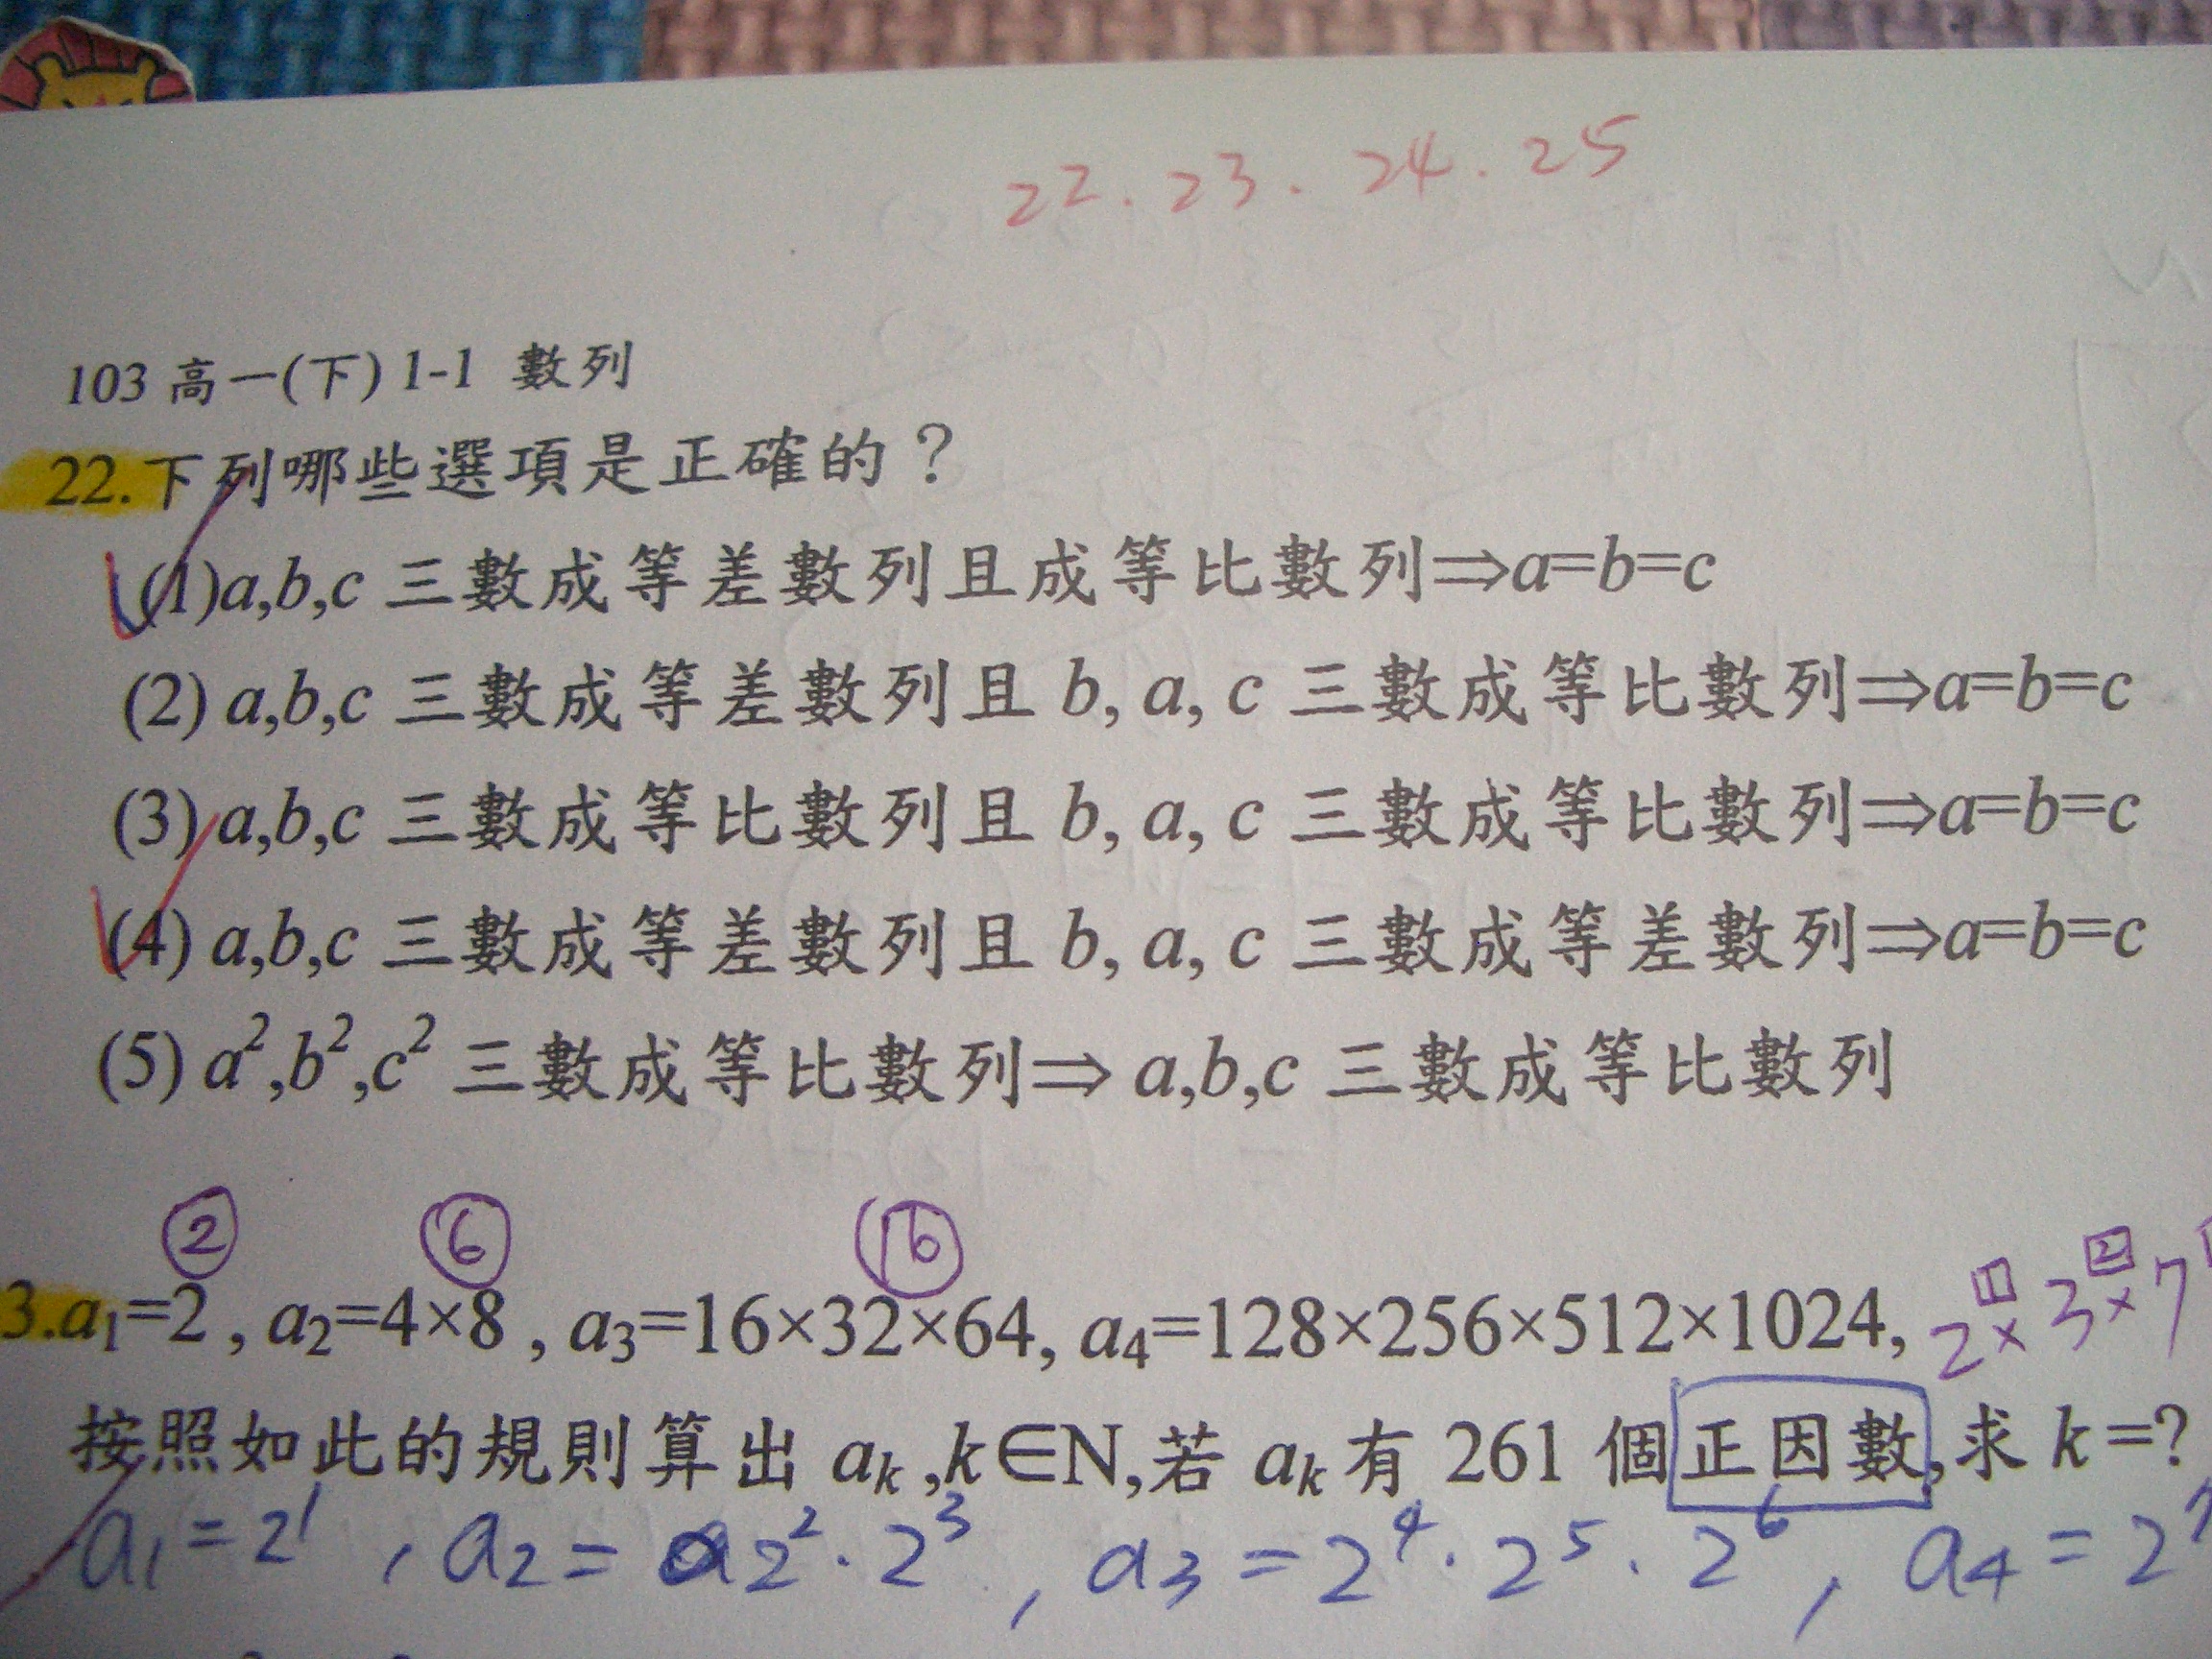 22.23.24.25
103 高一(下) 1-1 數列
22.下列哪些選項是正確的？
(1)a,b,c 三數成等差數列且成等比數列⇒a=b=c
(2) a,b,c 三數成等差數列且 b, a, c 三數成等比數列⇒a=b=c
(3) a,b,c 三數成等比數列且 b, a, c 三數成等比數列⇒a=b=c
(4) a,b,c 三數成等差數列且 b, a, c 三數成等差數列⇒a=b=c
(5) a²,b²,c² 三數成等比數列⇒ a,b,c 三數成等比數列
② ⑥ ⑯
3.a₁=2 , a₂=4×8 , a₃=16×32×64, a₄=128×256×512×1024, 2¹×3²×7
按照如此的規則算出 aₖ ,k∈N,若 aₖ 有 261 個正因數,求 k=?
a₁=2¹ , a₂=2²·2³ , a₃=2⁴·2⁵·2⁶ , a₄=2⁷